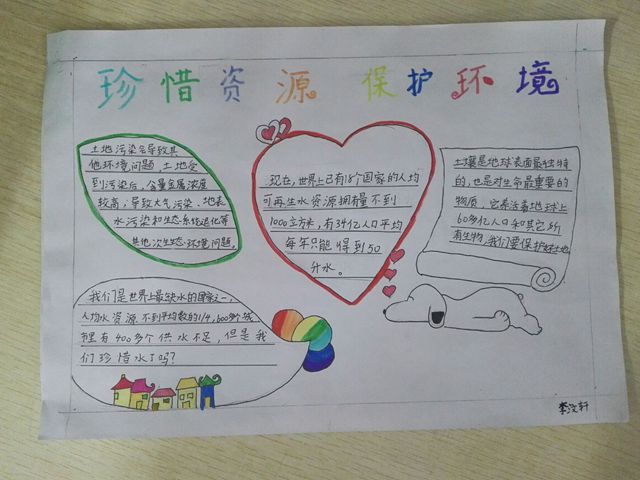 珍惜资源 保护环境
土地污染会导致其
他环境问题,土地受
到污染后,含量金属浓度
较高,导致大气污染、地表
水污染和生态系统退化等
其他次生态环境问题
现在,世界上已有18个国家的人均
可再生水资源拥量不到
1000立方米,有3.4亿人口平均
每年只能得到50
升水。
土壤是地球表面最独特
的,也是对生命最重要的
物质,它养活着地球上
60多亿人口和其它所
有生物,我们要保护好土地
我们是世界上最缺水的国家之一,
人均水资源不到平均数的1/4,600多个城
里有400多个供水不足,但是我
们珍惜水了吗?